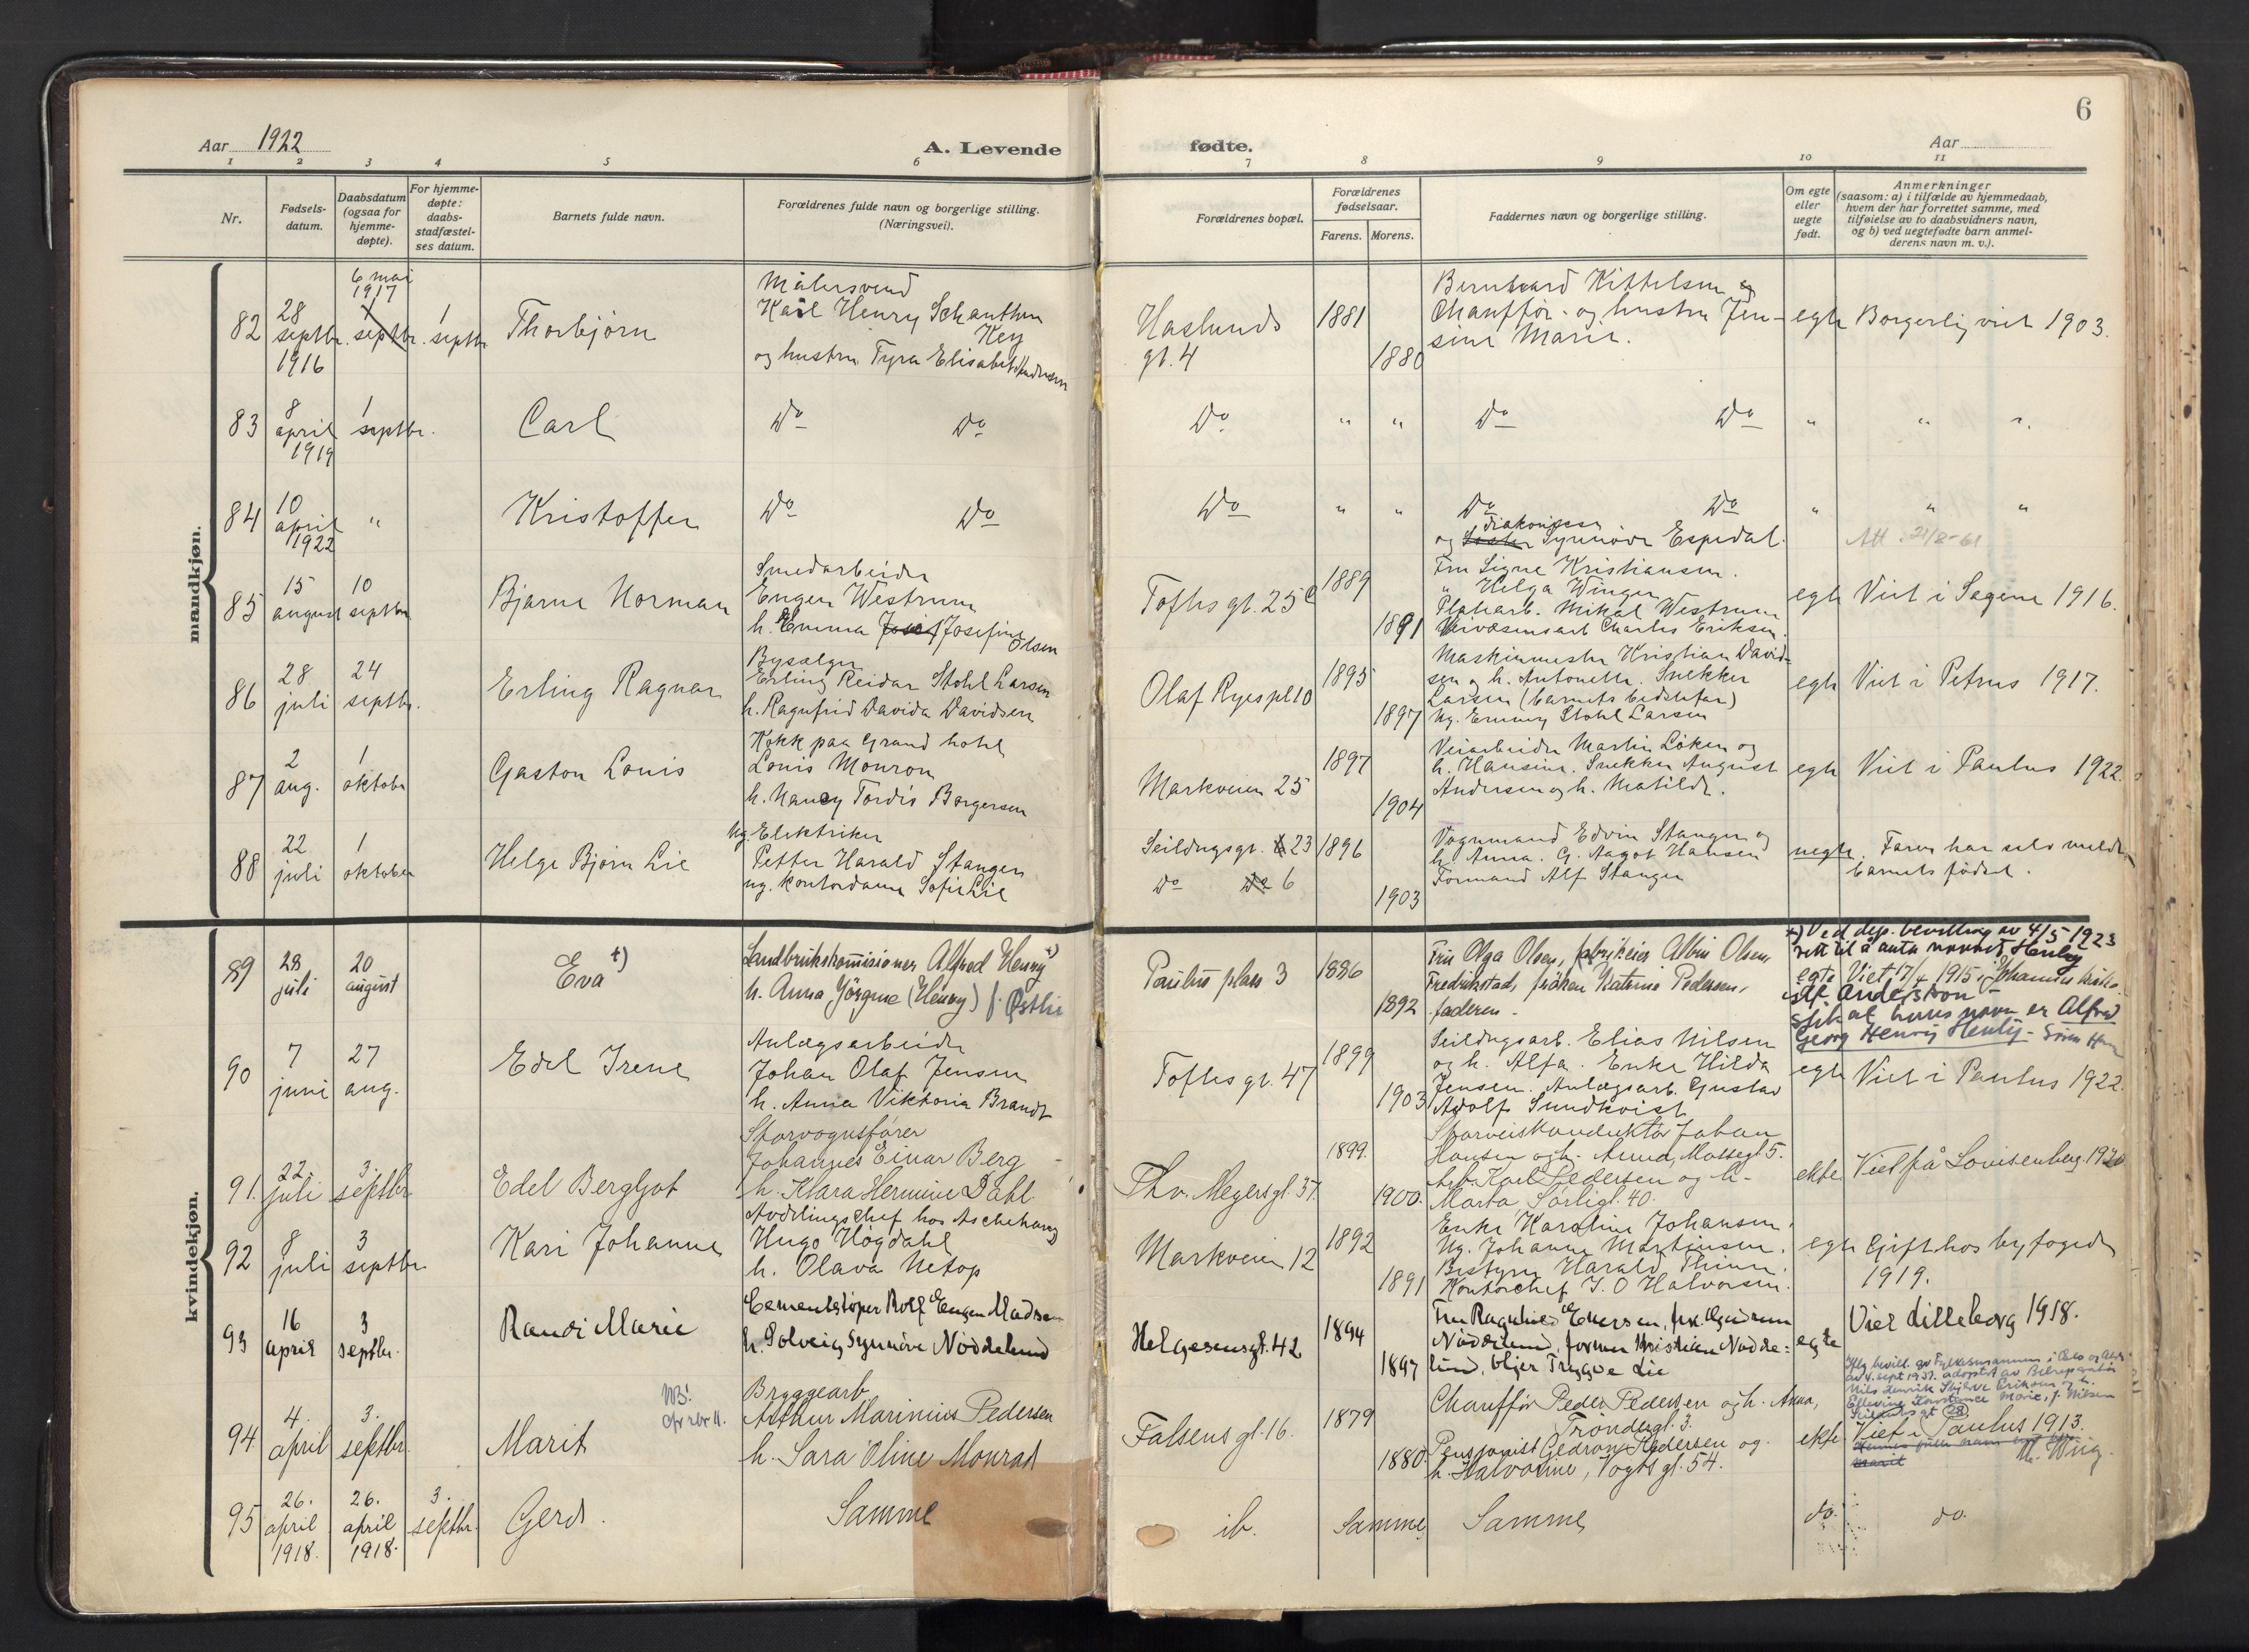 6
Aar 1922
A. Levende
fødte.
Aar
1 2 3 4 5 6 7 8 9 10 11
Nr.
Fødsels-
datum.
Daabsdatum
(ogsaa for
hjemme-
døpte).
For hjemme-
døpte:
daabs-
stadfæstel-
ses datum.
Barnets fulde navn.
Forældrenes fulde navn og borgerlige stilling.
(Næringsvei).
Forældrenes bopæl.
Forældrenes
fødselsaar.
Farens. Morens.
Faddernes navn og borgerlige stilling.
Om egte
eller
uegte
født.
Anmerkninger
(saasom: a) i tilfælde av hjemmedaab,
hvem der har forrettet samme, med
tilføielse av to daabsvidners navn,
og b) ved uegtefødte barn anmel-
derens navn m. v.).
mandkjøn.
82
28
septbr.
1916
6 mai
1917
1
septbr.
1
septbr
Thorbjørn
Malersvend
Karl Henry Schanthun
Key
og hustru Tyra Elisabet Knudsen
Haslunds
gt. 4
1881
1880
Bernhard Kittelsen og
Chauffør- og hustru Jen-
sine Marie.
egte
Borgerlig viet 1903.
83
8
april
1919
1
septbr.
Carl
Do Do
Do
" "
Do Do
"
" "
84
10
april
1922
"
Kristoffer
Do Do
Do
" "
Do Do
Diakonisse
og Søster Synnøve Espedal.
"
" "
Att. 21/8-61
85
15
august
10
septbr
Bjarne Norman
Smedarbeider
Eugen Westrum
h. Emma Josef Josefine
Olsen
Toftesgt. 25 c
1889
1891
Fru Signe Kristiansen.
" Helga Winger
Platearb. Mikal Westrum
Veivæsensarb Charles Eriksen.
egte
Viet i Sagene 1916.
86
28
juli
24
septbr.
Erling Ragnar
Bysælger
Erling Reidar Stohl Larsen
h. Ragnfrid Davida Davidsen
Olaf Ryes pl 10
1895
1897
Maskinmester Kristian David-
sen og h. Antonette. Snekker
Larsen (barnets bedstefar)
Ug. Emmy Stohl Larsen
egte
Viet i Petrus 1917.
87
2
aug.
1
oktober
Gaston Louis
Kokk paa Grand hotel
Louis Mouron
h. Nancy Tordis Borgersen
Markveien 25
1897
1904
Veiarbeider Martin Løken og
h. Hansine. Snekker August
Andersen og h. Matilde.
egte
Viet i Paulus 1922.
88
22
juli
1
oktober
Helge Bjørn Lie
Ug. Elektriker
Petter Harald Stangen
ug. kontordame Sofie Lie
Seildugsgt. 23
Do Do 6
1896
1903
Vognmand Edvin Stangen og
h. Anna. G. Aagot Hansen
Formand Alf Stangen
uegte.
Faren har selv meldt
barnets fødsel.
kvindekjøn.
89
28
juli
20
august
Eva +)
Landbrukskomisioner Alfred Henry +)
h. Anna Jörgine (Henry) f. Østlie
Paulus plass 3
1886
1892
Fru Olga Olsen, fabrikeier Albin Olsen,
Fredrikstad, frøken Katrine Pedersen,
faderen.
+) Ved dep. bevilling av 4/5 1923
rett til å anta navnet Henley
egte Viet 17/4 1915 i Johannes kirke
Andersson
at hans navn er Alfred
Georg Henry Henley
90
7
juni
27
aug.
Edel Irene
Anlægsarbeider
Johan Olaf Jensen
h. Anna Viktoria Brandt
Toftesgt. 47
1899
1903
Seildugsarb. Elias Nilsen
og h. Alfa. Enke Hilda
Jensen. Anlægsarb. Gustav
Adolf Sundkvist
egte
Viet i Paulus 1922.
91.
22.
juli
3.
septbr
Edel Bergljot
Sporvognsfører
Johannes Einar Berg
h. Klara Hermine Dahl.
Thv. Meyersgt. 37.
1899.
1900.
Sporveiskonduktør Johan
Hansen og h. Anna, Mossegt 5.
Arb. Karl Pedersen og h.
Marta, Sørligt. 40.
ekte
Viet på Lovisenberg. 1920
92
8
juli
3
septbr.
Kari Johanne
Avdelingschef hos Aschehoug
Hugo Høgdahl
h. Olava Netop
Markveien 12
1892
1891
Enke Karoline Johansen.
Ug. Johanne Martinsen.
Bestyrer Harald Thinn.
Kontorchef J. O Halvorsen.
egte
Gift hos byfogden
1919.
93
16
april
3
septbr.
Randi Marie
Cementstøper Rolf Eugen Madsen
h. Solveig Synnöve Nöddelund
Helgesensgt. 42
1894
1897
Fru Ragnhild Evensen, frk. Gudrun
Nöddelund, forman Kristian Nödde=
lund, Trygve Lie
egte
Viet Lilleborg 1918.
94.
4.
april
3.
septbr.
Marit
NB!
cfr. rbr 11.
Bryggearb
Arthur Marinius Pedersen
h. Sara Oline Monrad
Falsens gt. 16.
1879
1880.
Chauffør Peder Pedersen og h. Anna,
Trøndergt. 3.
Pensjonist Gedion Pedersen og
h. Halvorine, Vogts gt. 54.
ekte
Iflg bevill. av Fylkesmannen i Oslo og Akers
av 4. sept 1931. adoptert av
Nils Henrik Eriksen og h.
Ellevine Konstance Marie, f. Nilsen
Seildugsgt 28
Viet i Paulus 1913.
Marit
95
26.
april
1918.
26.
april
1918.
3.
septbr.
Gerd.
Samme
ib.
Samme
Samme
do.
do.